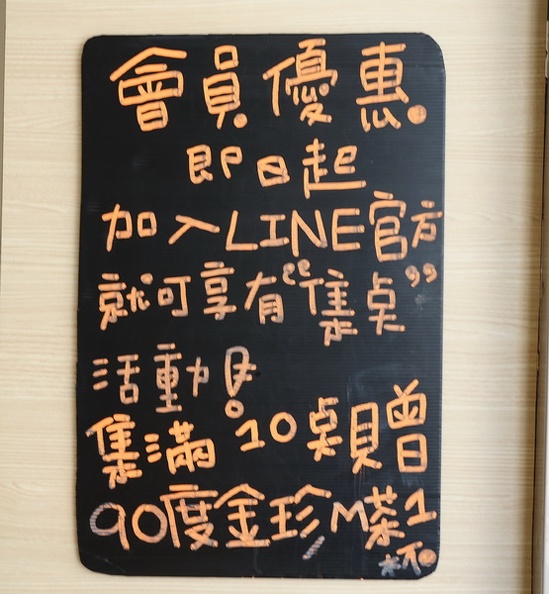 會員優惠
即日起
加入LINE官方
就可享有“集点”
活動!
集滿10点贈
90度金珍M茶1杯